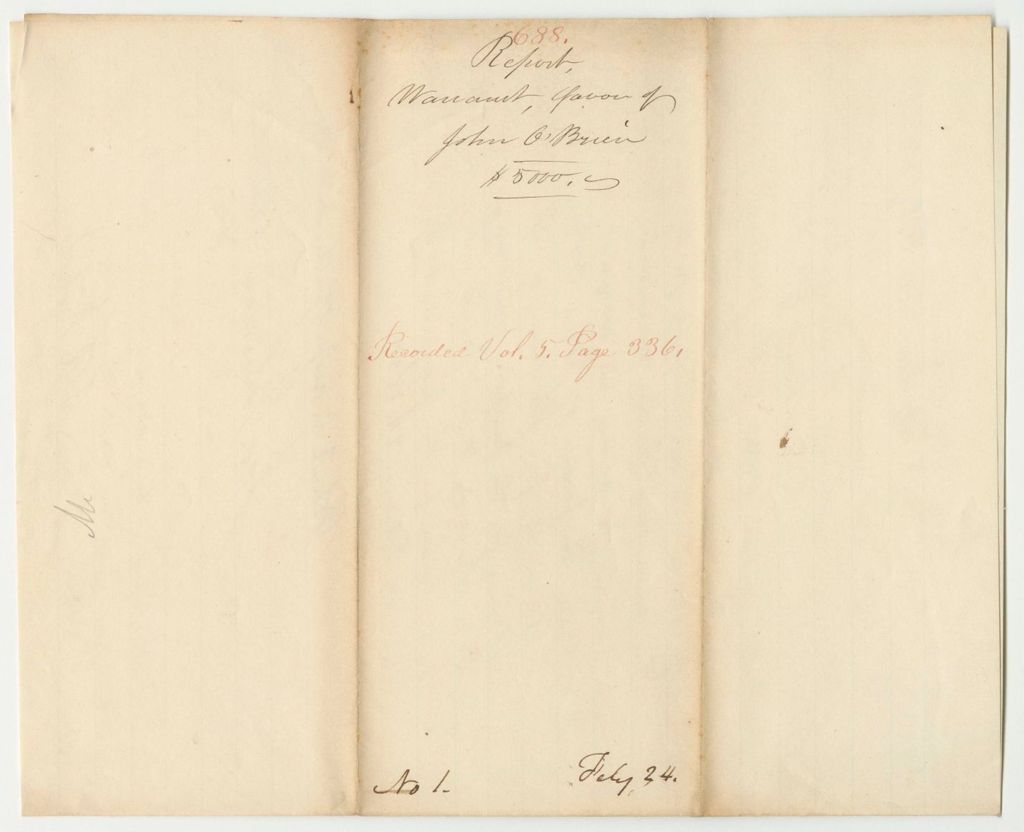 688.
Report,
Warrant, favor of
John O'Brien
$5000.
Recorded Vol. 5. Page 336.
No 1.
Feby 24.